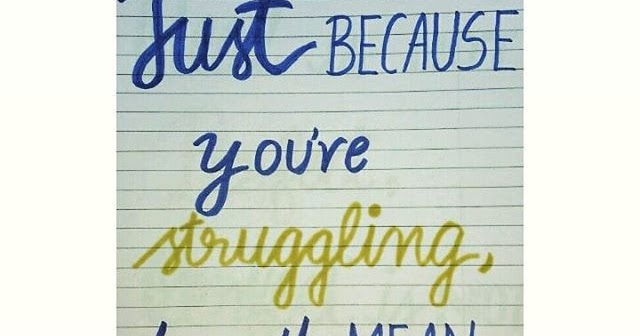 Just BECAUSE
you're
struggling,
MEAN